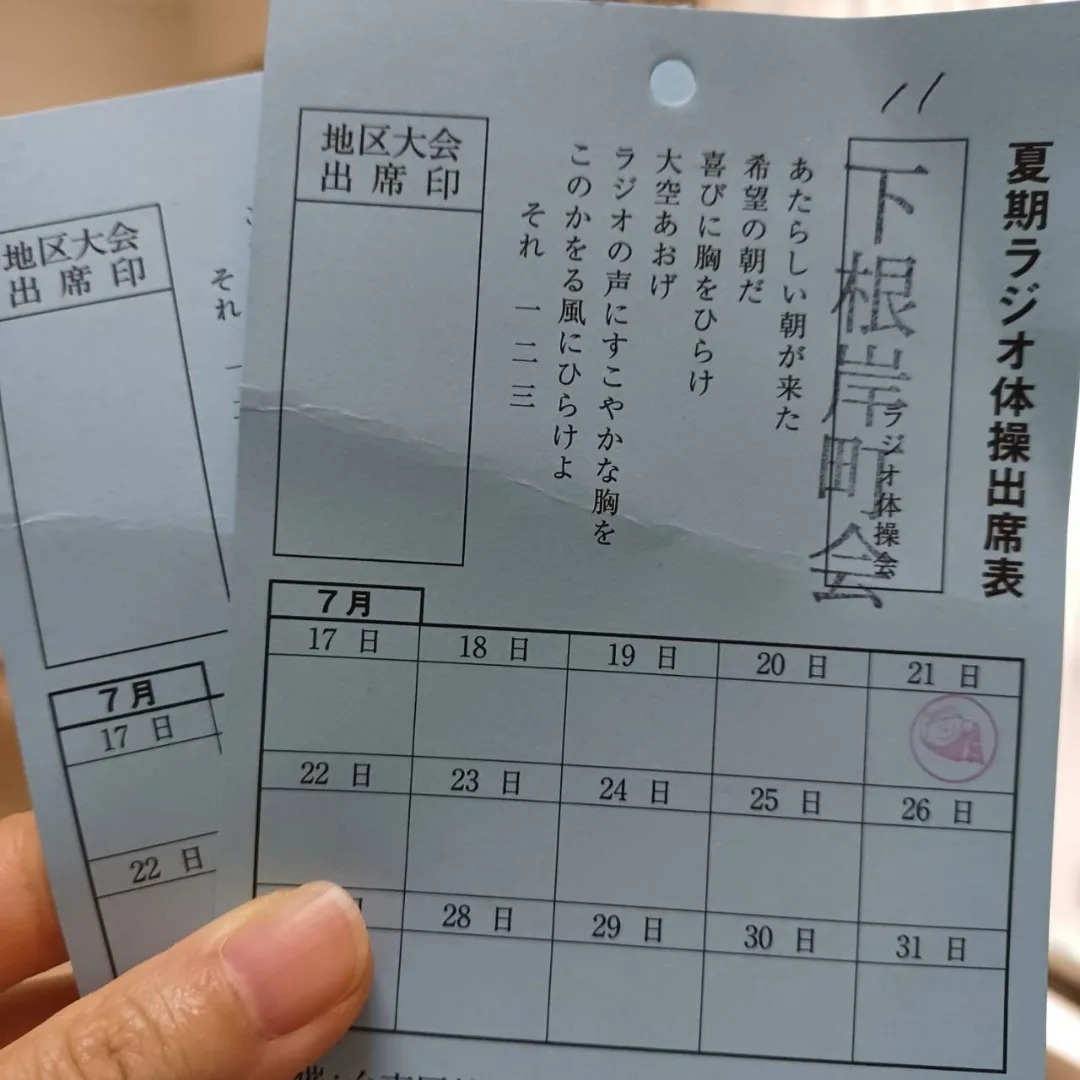 夏期ラジオ体操出席表
下根岸町会
ラジオ体操会
あたらしい朝が来た
希望の朝だ
喜びに胸をひらけ
大空あおげ
ラジオの声にすこやかな胸を
このかをる風にひらけよ
それ 一 二 三
地区大会
出席印
7月
17日 18日 19日 20日 21日
22日 23日 24日 25日 26日
28日 29日 30日 31日
それ
地区大会
出席印
7月
17日
22日